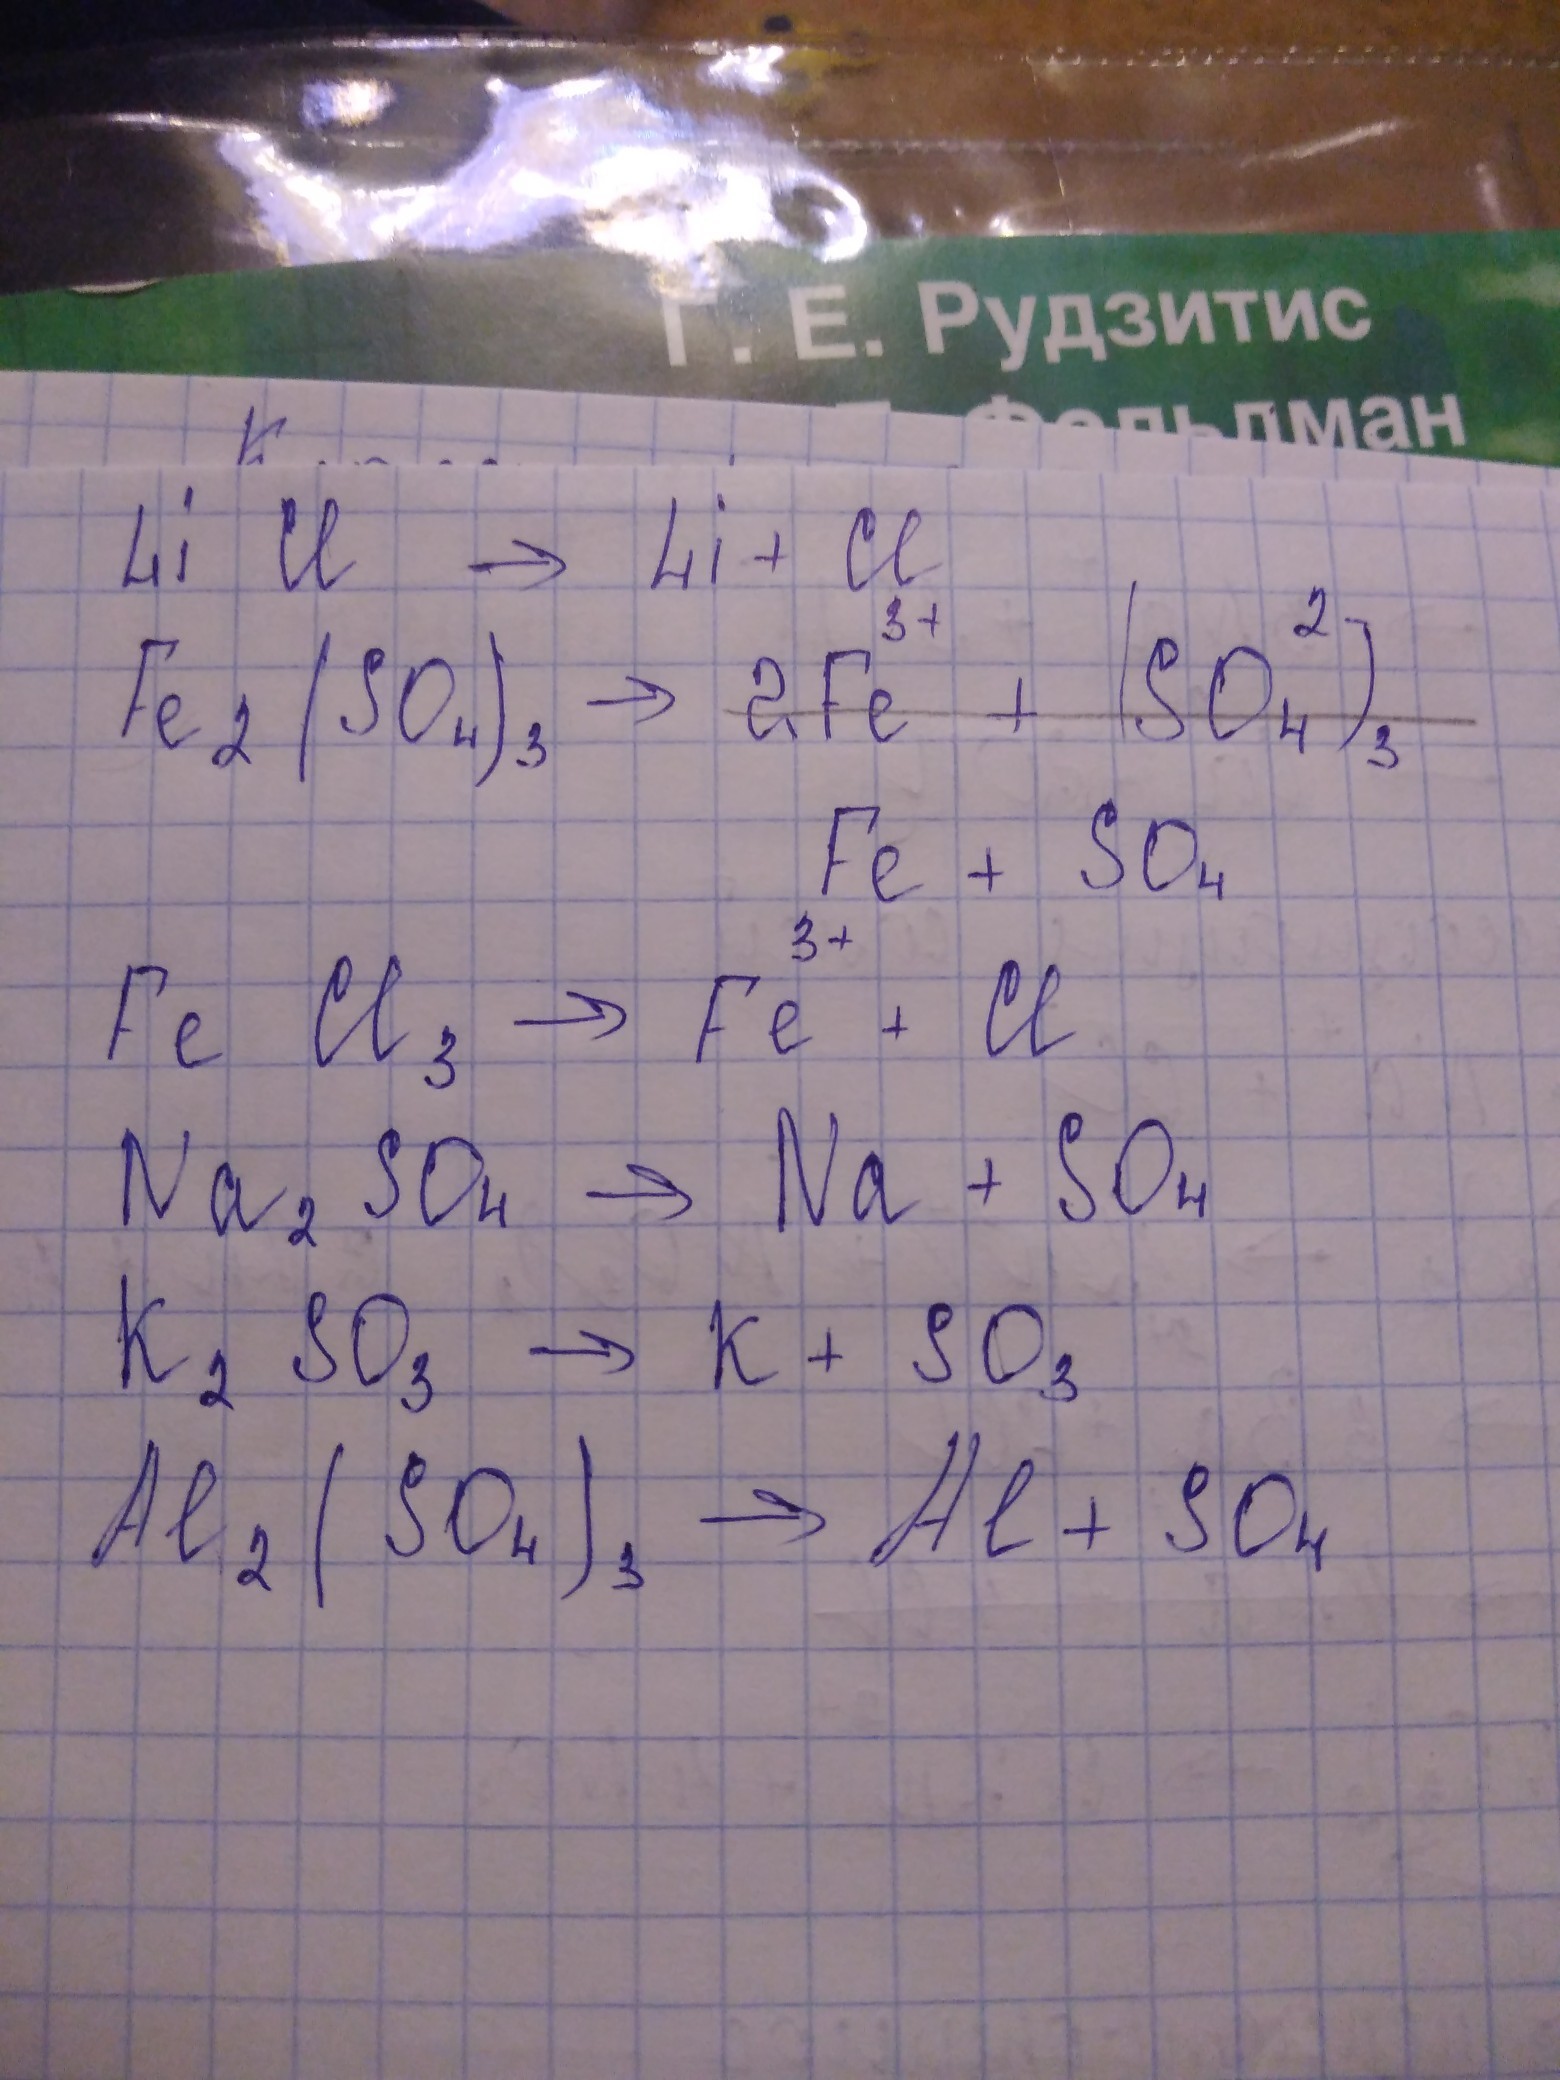 Г. Е. Рудзитис
Фельдман
Li Cl → Li + Cl
Fe₂(SO₄)₃ → 2Fe³⁺ + (SO₄²⁻)₃
Fe + SO₄
Fe Cl₃ → Fe³⁺ + Cl
Na₂SO₄ → Na + SO₄
K₂SO₃ → K + SO₃
Al₂(SO₄)₃ → Al + SO₄